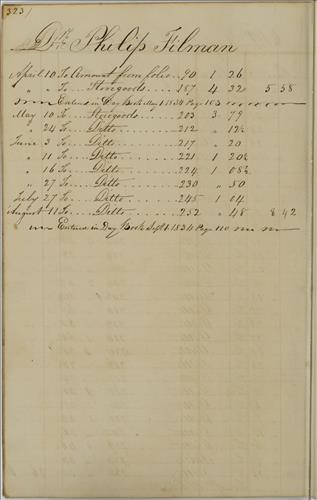 323
Dr Philip Tilman
April 10 To Amount from folio 90 1 26
" " To Storegoods 187 4 32 5 58
Entered in Day Book May 1 1834 Page 103
May 10 To Storegoods 203 3 79
" 24 To Ditto 212 " 12½
June 3 To Ditto 217 " 20
" 11 To Ditto 221 1 20½
" 16 To Ditto 224 1 08½
" 27 To Ditto 230 " 50
July 27 To Ditto 245 1 04
August 11 To Ditto 252 " 48 8 42
Entered in Day Book Sept 1 1834 Page 110